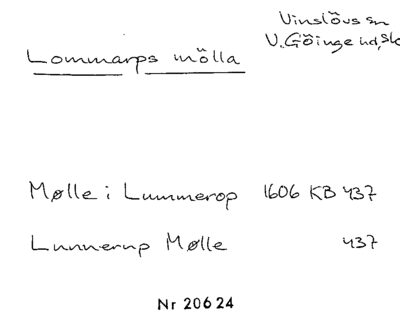 Vinslövs sn
V. Göinge hd, Sk
Lommarps mölla
Mølle i Lummerop 1606 KB 437
Lunnerup Mølle 437
Nr 20624